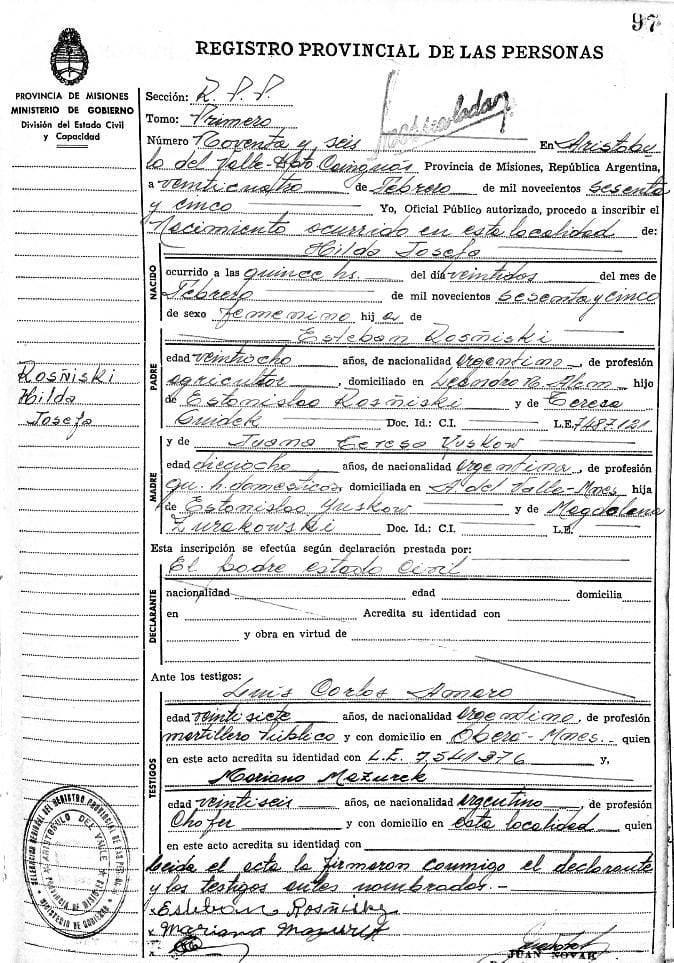 97
REGISTRO PROVINCIAL DE LAS PERSONAS
PROVINCIA DE MISIONES
MINISTERIO DE GOBIERNO
División del Estado Civil
y Capacidad
Sección: R. P. P.
Tomo: Primero
Número Noventa y seis En Aristóbu
lo del Valle - Dpto Cainguas Provincia de Misiones, República Argentina,
a veinticuatro de Febrero de mil novecientos sesenta
y cinco Yo, Oficial Público autorizado, procedo a inscribir el
Nacimiento ocurrido en esta localidad de:
Hilda Josefa
NACIDO
ocurrido a las quince hs. del día veintidos del mes de
Febrero de mil novecientos sesenta y cinco
de sexo femenino hij a de
Esteban Rosñiski
Rosñiski
Hilda
Josefa
PADRE
edad veintiocho años, de nacionalidad argentino, de profesión
agricultor, domiciliado en Leandro N. Alem hijo
de Estanislao Rosñiski y de Teresa
Doc. Id.: C.I. L.E. 7487121
y de Juana Teresa Yuskow
MADRE
edad dieciocho años, de nacionalidad argentina, de profesión
qu. h. domesticos, domiciliada en A. del Valle - Mnes hija
de Estanislao Yuskow y de Magdalena
Zurakowski Doc. Id.: C.I. L.E.
Esta inscripción se efectúa según declaración prestada por:
El padre estado Civil
DECLARANTE
nacionalidad edad domicilia
en Acredita su identidad con
y obra en virtud de
Ante los testigos:
Luis Carlos Amaro
TESTIGOS
edad veintisiete años, de nacionalidad argentino, de profesión
martillero Público y con domicilio en Obera - Mnes. - quien
en este acto acredita su identidad con L.E. 7,541,376 y,
Mariano Mazurek
edad veintiseis años, de nacionalidad argentino, de profesión
Chofer y con domicilio en esta localidad quien
en este acto acredita su identidad con
Leída el acta la firmaron conmigo el declarante
y los testigos antes nombrados. -
Esteban Rosñiski
Mariano Mazurek
JUAN NOVAK
ARISTOBULO DEL VALLE
PROVINCIA DE MISIONES
MINISTERIO DE GOBIERNO